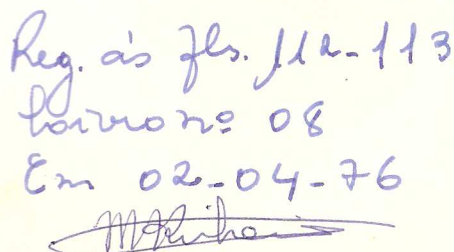 Reg. às fls. 112-113
Livro nº 08
Em 02-04-76